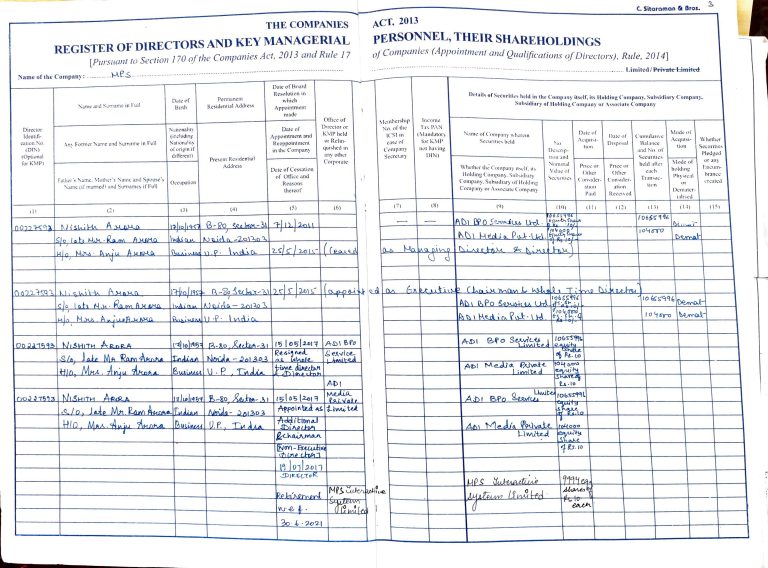 C. Sitaraman & Bros.
3
THE COMPANIES ACT, 2013
REGISTER OF DIRECTORS AND KEY MANAGERIAL PERSONNEL, THEIR SHAREHOLDINGS
[Pursuant to Section 170 of the Companies Act, 2013 and Rule 17 of Companies (Appointment and Qualifications of Directors), Rule, 2014]
Name of the Company: MPS Limited/Private Limited
Director Identification No. (DIN) (Optional for KMP)
Name and Surname in Full
Any Former Name and Surname in Full
Father's Name, Mother's Name and Spouse's Name (if married) and Surnames if Full
Date of Birth
Nationality (including Nationality of origin if different)
Occupation
Permanent Residential Address
Present Residential Address
Date of Board Resolution in which Appointment made
Date of Appointment and Reappointment in the Company
Date of Cessation of Office and Reasons thereof
Office of Director or KMP held or Relinquished in any other Corporate
Membership No. of the ICSI in case of Company Secretary
Income Tax PAN (Mandatory for KMP not having DIN)
Details of Securities held in the Company itself, its Holding Company, Subsidiary Company, Subsidiary of Holding Company or Associate Company
Name of Company wherein Securities held
Whether the Company itself, its Holding Company, Subsidiary Company, Subsidiary of Holding Company or Associate Company
No. Description and Nominal Value of Securities
Date of Acquisition
Price or Other Consideration Paid
Date of Disposal
Price or Other Consideration Received
Cumulative Balance and No. of Securities held after each Transaction
Mode of Acquisition
Mode of holding Physical or Dematerialised
Whether Securities Pledged or any Encumbrance created
(1) (2) (3) (4) (5) (6) (7) (8) (9) (10) (11) (12) (13) (14) (15)
00227593 Nishith Arora 17/10/1957 B-80, Sector-31 7/12/2011 — — ADI BPO Services Ltd. 10655996 10655996 Demat
S/o, late Mr. Ram Arora Indian Noida-201303 ADI Media Pvt. Ltd. 104000 104000 Demat
H/o, Mrs. Anju Arora Business U.P. India 25/5/2015 (Ceased as Managing Director & Director)
00227593 Nishith Arora 17/10/1957 B-80, Sector-31 25/5/2015 (appointed as Executive Chairman & Whole Time Director)
S/o, late Mr. Ram Arora Indian Noida-201303 ADI BPO Services Ltd 10655996 10655996 Demat
H/o, Mrs. Anju Arora Business U.P. India ADI Media Pvt. Ltd. 104000 104000 Demat
00227593 NISHITH ARORA 17/10/1957 B-80, Sector-31 15/05/2017 ADI BPO ADI BPO Services 10655996
S/o, late Mr. Ram Arora Indian Noida-201303 Resigned as whole Service Limited equity share of Rs.10
H/o, Mrs. Anju Arora Business U.P., India time director & Director Limited ADI Media Private Limited 104000 equity share of Rs.10
00227593 NISHITH ARORA 17/10/1957 B-80, Sector-31 15/05/2017 ADI Media Private Limited ADI BPO Services Limited 10655996 equity share of Rs.10
S/O, late Mr. Ram Arora Indian Noida-201303 Appointed as
H/O, Mrs. Anju Arora Business U.P., India Additional Director & Chairman ADI Media Private Limited 104000 equity share of Rs.10
(Non-Executive Director)
19/07/2017
DIRECTOR
Retirement MPS Interactive MPS Interactive
w.e.f. System Limited System Limited shares of Rs 10 each
30.6.2021